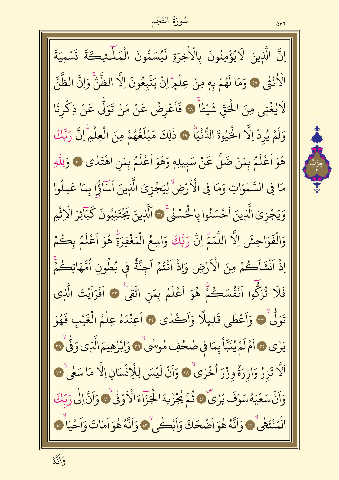 سُورَةُ النَّجْمِ
٥٢٦
اِنَّ الَّذينَ لَا يُؤْمِنُونَ بِالْاٰخِرَةِ لَيُسَمُّونَ الْمَلٰٓئِكَةَ تَسْمِيَةَ
الْاُنْثٰى ٢٧ وَمَا لَهُمْ بِه۪ مِنْ عِلْمٍ اِنْ يَتَّبِعُونَ اِلَّا الظَّنَّ وَاِنَّ الظَّنَّ
لَا يُغْن۪ي مِنَ الْحَقِّ شَيْـًٔا ٢٨ فَاَعْرِضْ عَنْ مَنْ تَوَلّٰى عَنْ ذِكْرِنَا
وَلَمْ يُرِدْ اِلَّا الْحَيٰوةَ الدُّنْيَا ٢٩ ذٰلِكَ مَبْلَغُهُمْ مِنَ الْعِلْمِ اِنَّ رَبَّكَ
هُوَ اَعْلَمُ بِمَنْ ضَلَّ عَنْ سَب۪يلِه۪ وَهُوَ اَعْلَمُ بِمَنِ اهْتَدٰى ٣٠ وَلِلّٰهِ
مَا فِي السَّمٰوَاتِ وَمَا فِي الْاَرْضِ لِيَجْزِيَ الَّذ۪ينَ اَسَٓاؤُ۫ا بِمَا عَمِلُوا
وَيَجْزِيَ الَّذ۪ينَ اَحْسَنُوا بِالْحُسْنٰى ٣١ اَلَّذ۪ينَ يَجْتَنِبُونَ كَبَٓائِرَ الْاِثْمِ
وَالْفَوَاحِشَ اِلَّا اللَّمَمَ اِنَّ رَبَّكَ وَاسِعُ الْمَغْفِرَةِ هُوَ اَعْلَمُ بِكُمْ
اِذْ اَنْشَاَكُمْ مِنَ الْاَرْضِ وَاِذْ اَنْتُمْ اَجِنَّةٌ ف۪ي بُطُونِ اُمَّهَاتِكُمْ
فَلَا تُزَكُّٓوا اَنْفُسَكُمْ هُوَ اَعْلَمُ بِمَنِ اتَّقٰى ٣٢ اَفَرَاَيْتَ الَّذ۪ي
تَوَلّٰى ٣٣ وَاَعْطٰى قَل۪يلًا وَاَكْدٰى ٣٤ اَعِنْدَهُ عِلْمُ الْغَيْبِ فَهُوَ
يَرٰى ٣٥ اَمْ لَمْ يُنَبَّأْ بِمَا ف۪ي صُحُفِ مُوسٰى ٣٦ وَاِبْرٰه۪يمَ الَّذ۪ي وَفّٰى ٣٧
اَلَّا تَزِرُ وَازِرَةٌ وِزْرَ اُخْرٰى ٣٨ وَاَنْ لَيْسَ لِلْاِنْسَانِ اِلَّا مَا سَعٰى ٣٩
وَاَنَّ سَعْيَهُ سَوْفَ يُرٰى ٤٠ ثُمَّ يُجْزٰيهُ الْجَزَٓاءَ الْاَوْفٰى ٤١ وَاَنَّ اِلٰى رَبِّكَ
الْمُنْتَهٰى ٤٢ وَاَنَّهُ هُوَ اَضْحَكَ وَاَبْكٰى ٤٣ وَاَنَّهُ هُوَ اَمَاتَ وَاَحْيَا ٤٤
وَاَنَّهُ